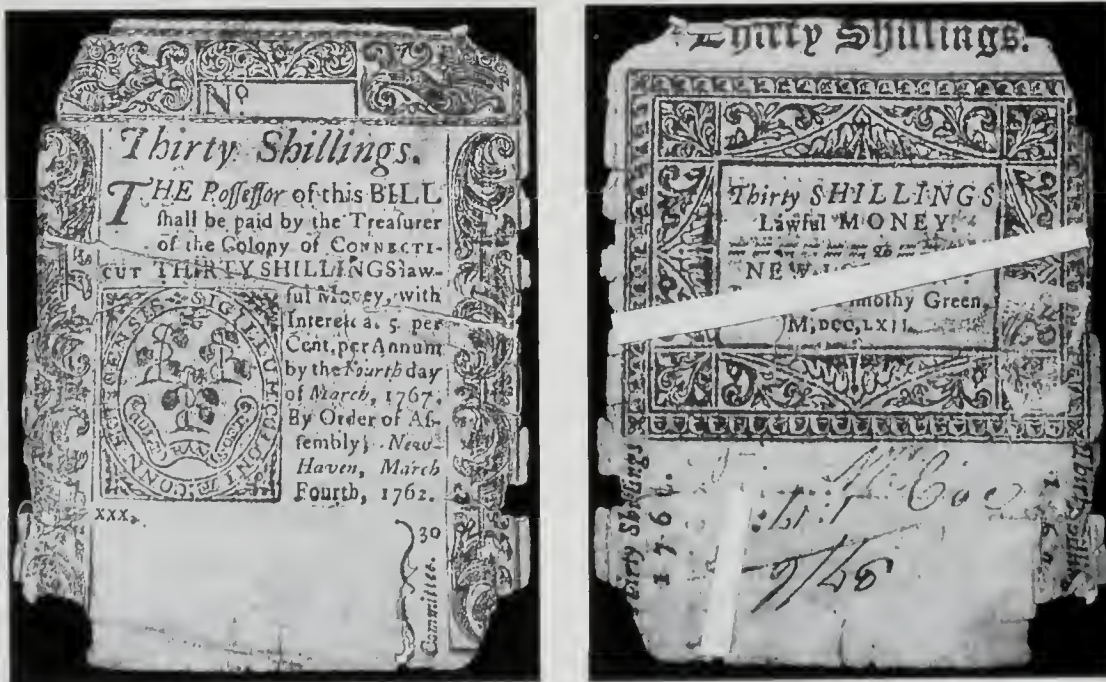 No
Thirty Shillings.
THE Poſſeſſor of this BILL
ſhall be paid by the Treaſurer
of the Colony of CONNECTI-
CUT THIRTY SHILLINGS law-
ful Money, with
Intereſt a. 5. per
Cent, per Annum
by the Fourth day
of March, 1767.
By Order of Aſ-
ſembly; New-
Haven, March
Fourth, 1762.
SIGILLUM COLONIÆ CONNECTICENSIS
XXX.
30
Committee.
Thirty Shillings.
Thirty SHILLINGS
Lawful MONEY.
NEW
Timothy Green,
M,DCC,LXII.
Thirty Shillings
1764.
Coe
Thirty Shillings